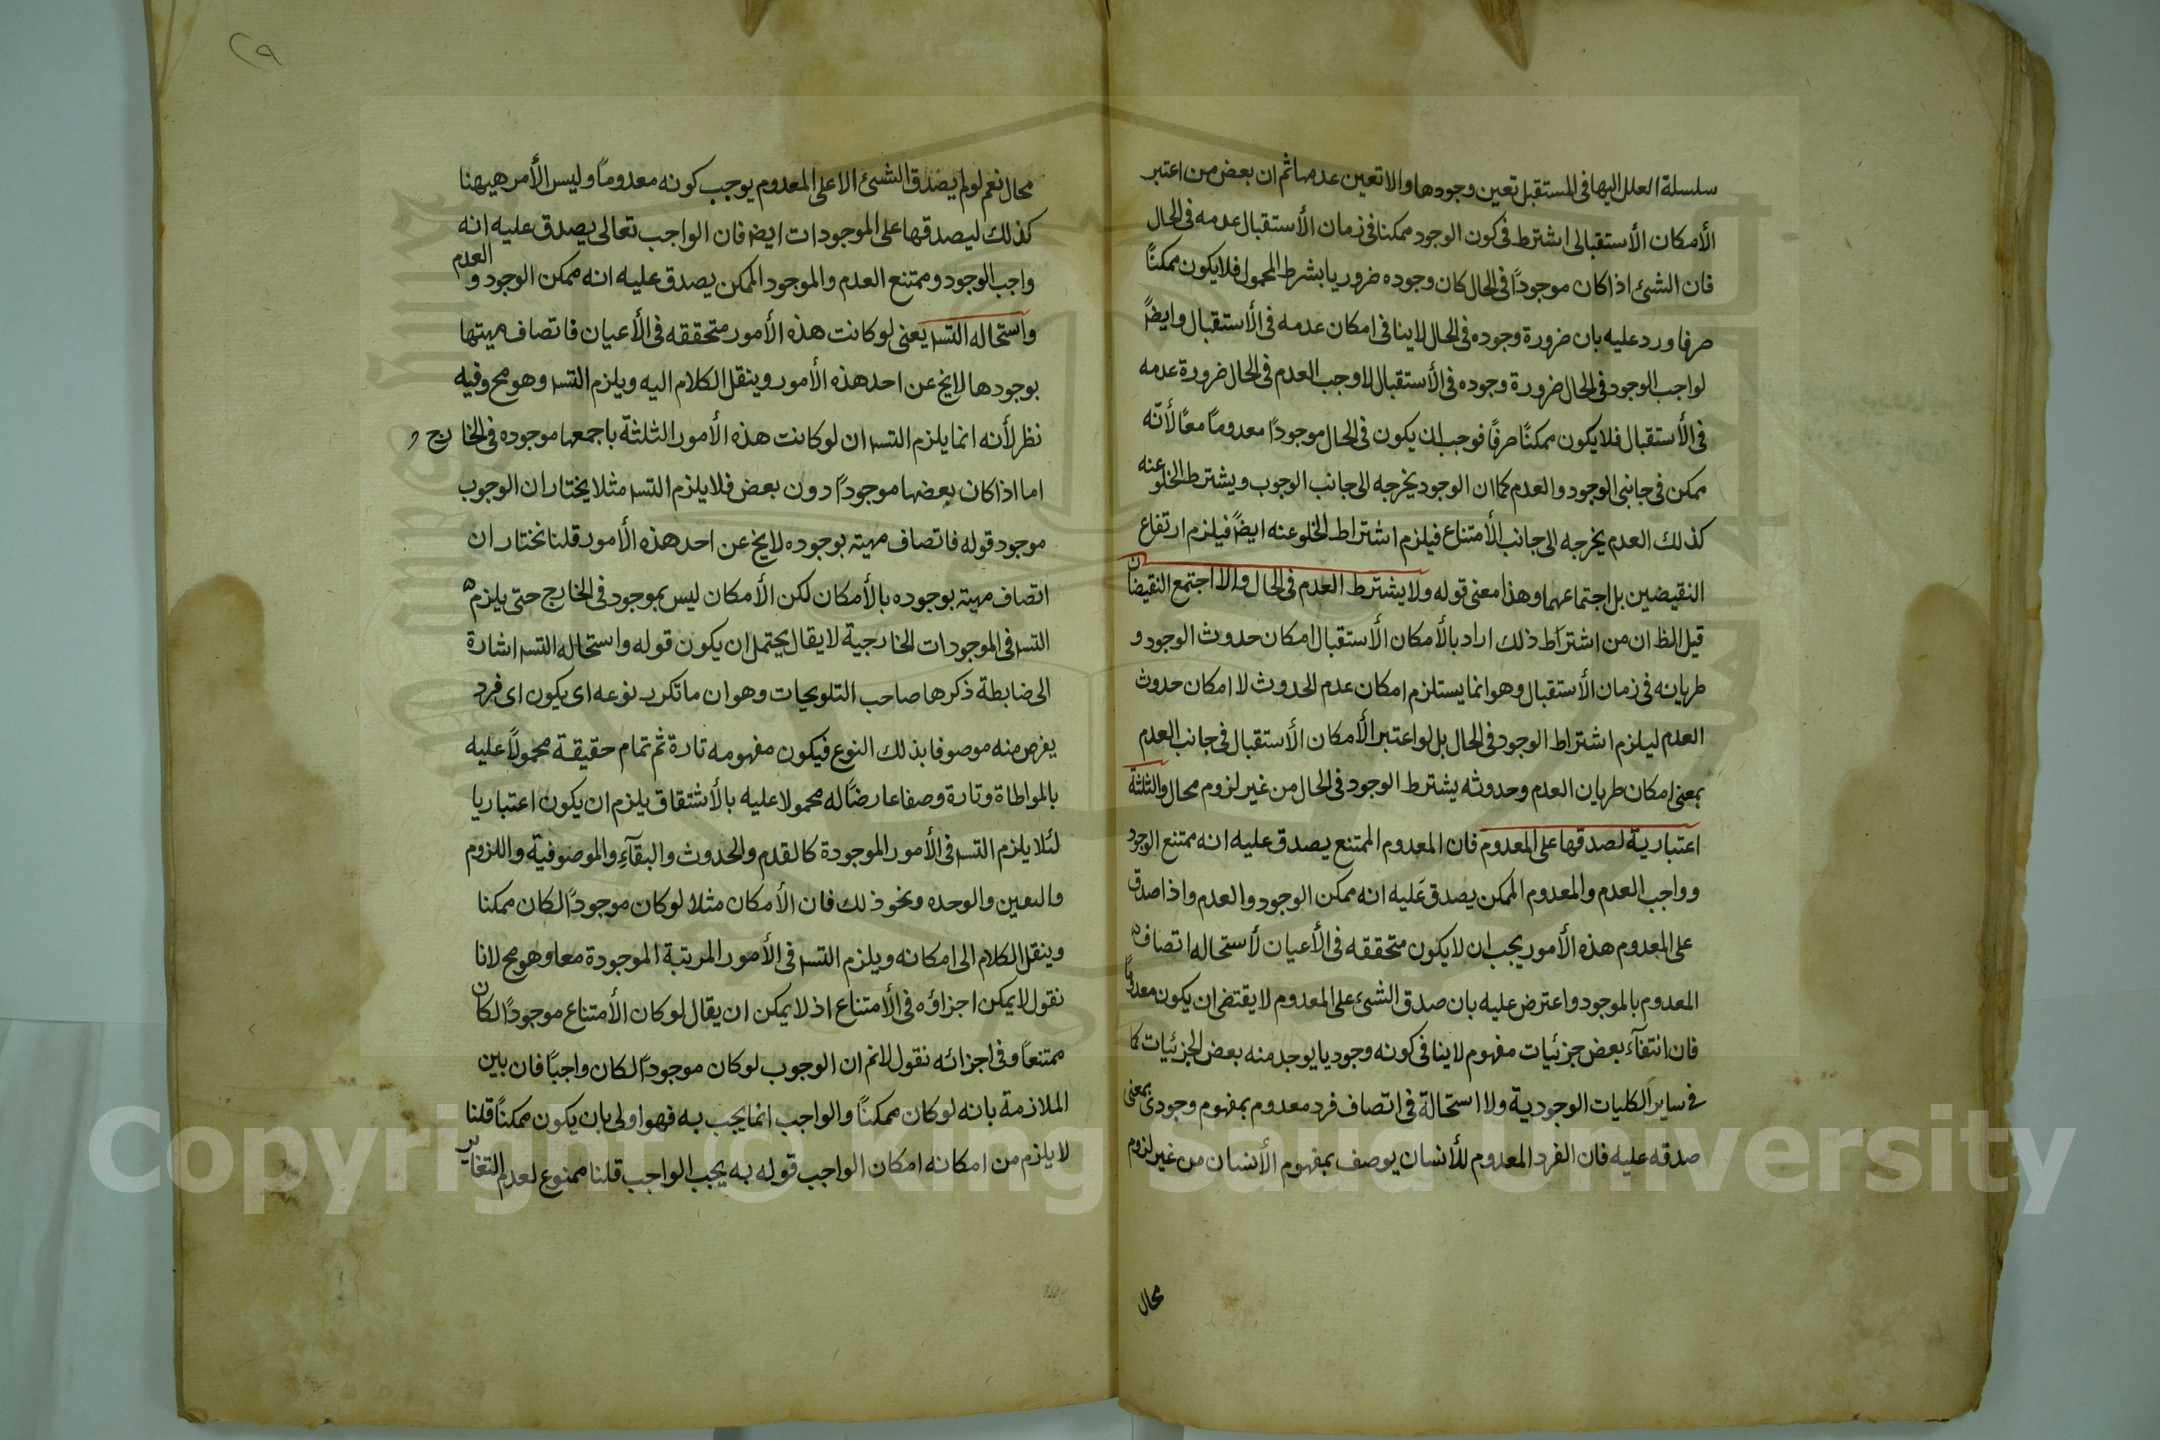 سلسلة العلل اليها فى المستقبل تعين وجودها والا تعين عدمها ثم ان بعض من اعتبر
الأمكان الأستقبالى اشترط فى كون الوجود ممكنا فى زمان الأستقبال عدمه فى الحال
فان الشئ اذا كان موجودًا فى الحال كان وجوده ضروريا بشرط المحمول فلا يكون ممكنًا
صرفا ورد عليه بان ضرورة وجوده فى الحال لا ينافى امكان عدمه فى الأستقبال وايضًا
لو اجب الوجود فى الحال ضرورة وجوده فى الأستقبال لاوجب العدم فى الحال ضرورة عدمه
فى الأستقبال فلا يكون ممكنًا صرفًا فوجب ان يكون فى الحال موجودًا معدومًا معًا لأنّه
ممكن فى جانبى الوجود والعدم كما ان الوجود يخرجه الى جانب الوجوب ويشترط الخلو عنه
كذلك العدم يخرجه الى جانب الأمتناع فيلزم اشتراط الخلو عنه ايضًا فيلزم ارتفاع
النقيضين بل اجتماعهما وهذا معنى قوله ولا يشترط العدم فى الحال والا اجتمع النقيضان
قيل الظ ان من اشترط ذلك اراد بالأمكان الأستقبال امكان حدوث الوجود و
طريانه فى زمان الأستقبال وهو انما يستلزم امكان عدم الحدوث لا امكان حدوث
العدم ليلزم اشتراط الوجود فى الحال بل لو اعتبر الأمكان الأستقبال فى جانب العدم
بمعنى امكان طريان العدم وحدوثه يشترط الوجود فى الحال من غير لزوم محال والثلثة
اعتبارية لصدقها على المعدوم فان المعدوم الممتنع يصدق عليه انه ممتنع الوجود
وواجب العدم والمعدوم الممكن يصدق عليه انه ممكن الوجود والعدم واذا صدق
على المعدوم هذه الأمور يجب ان لا يكون متحققه فى الأعيان لأستحاله اتصاف
المعدوم بالموجود واعترض عليه بان صدق الشئ على المعدوم لا يقتضى ان يكون معدومًا
فان انتفآء بعض جزئيات مفهوم لا ينافى كونه وجوديا يوجد منه بعض الجزئيات كما
فى ساير الكليات الوجودية ولا استحالة فى اتصاف فرد معدوم بمفهوم وجودى بمعنى
صدقه عليه فان الفرد المعدوم للأنسان يوصف بمفهوم الأنسان من غير لزوم
محال
٢٩
محال نعم لو لم يصدق الشئ الا على المعدوم يوجب كونه معدومًا وليس الأمر هيهنا
كذلك ليصدقها على الموجودات ايضا فان الواجب تعالى يصدق عليه انه
واجب الوجود وممتنع العدم والموجود الممكن يصدق عليه انه ممكن الوجود والعدم
واستحاله التسـ يعنى لو كانت هذه الأمور متحققه فى الأعيان فاتصاف مهيتها
بوجودها لا يخ عن احد هذه الأمور وينقل الكلام اليه ويلزم التسـ وهو مح وفيه
نظر لأنه انما يلزم التسـ ان لو كانت هذه الأمور الثلثة باجمعها موجوده فى الخارج و
اما اذا كان بعضها موجودًا دون بعض فلا يلزم التسـ مثلا يختار ان الوجوب
موجود قوله فاتصاف مهيته بوجوده لا يخ عن احد هذه الأمور قلنا نختار ان
اتصاف مهيته بوجوده بالأمكان لكن الأمكان ليس بموجود فى الخارج حتى يلزم
التسـ فى الموجودات الخارجية لا يقال يحتمل ان يكون قوله واستحاله التسـ اشارة
الى ضابطة ذكرها صاحب التلويحات وهو ان ما تكرر نوعه اى يكون اى فرد
يفرض منه موصوفا بذلك النوع فيكون مفهومه تارة ثم تمام حقيقة محمولًا عليه
بالمواطاة وتارة وصفا عارضًا له محمولا عليه بالأشتقاق يلزم ان يكون اعتباريا
لئلا يلزم التسـ فى الأمور الموجودة كالقدم والحدوث والبقآء والموصوفية واللزوم
والتعين والوحده ونحو ذلك فان الأمكان مثلا لو كان موجودًا لكان ممكنا
وينقل الكلام الى امكانه ويلزم التسـ فى الأمور المرتبة الموجودة معا وهو مح لانا
نقول لا يمكن اجزاؤه فى الأمتناع اذ لا يمكن ان يقال لو كان الأمتناع موجودًا لكان
ممتنعًا وفى اجزائه نقول لانم ان الوجوب لو كان موجودًا لكان واجبًا فان بين
الملازمة بانه لو كان ممكنًا والواجب انما يجب به فهو اولى بان يكون ممكنًا قلنا
لا يلزم من امكانه امكان الواجب قوله به يجب الواجب قلنا ممنوع لعدم التغاير
Copyright © King Saud University